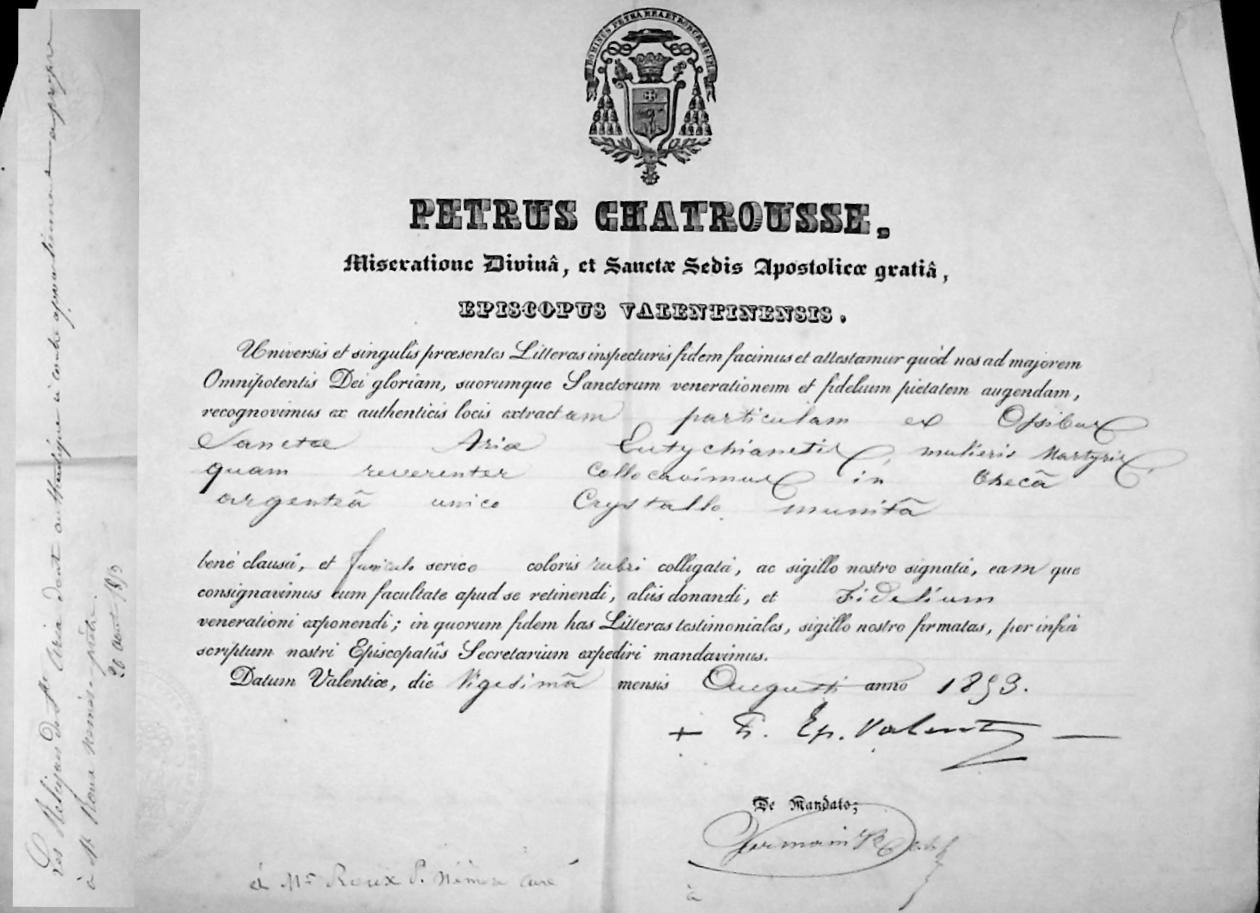 PETRUS CHATROUSSE,
Miseratione Divinâ, et Sanctæ Sedis Apostolicæ gratiâ,
EPISCOPUS VALENTINENSIS.
Universis et singulis præsentes Litteras inspecturis fidem facimus et attestamur quòd nos ad majorem
Omnipotentis Dei gloriam, suorumque Sanctorum venerationem et fidelium pietatem augendam,
recognovimus ex authenticis locis extractam particulam ex Ossibus
Sanctæ Ariæ Eutychianetis, mulieris Martyris,
quam reverenter collocavimus in thecâ
argenteâ unico Crystallo munitâ
benè clausâ, et funiculo serico coloris rubri colligatâ, ac sigillo nostro signatâ, eam que
consignavimus cum facultate apud se retinendi, aliis donandi, et Fidelium
venerationi exponendi; in quorum fidem has Litteras testimoniales, sigillo nostro firmatas, per infra
scriptum nostri Episcopatûs Secretarium expediri mandavimus.
Datum Valentiæ, die Vigesimâ mensis Augusti anno 1853.
+ P. Ep. Valent
De Mandato;
Germain
à Mr Roux P. Némèse curé
à
Ces Reliques de Ste Aria dont authentique ci contre appartiennent en propre
à Mr Roux némèse prêtre.
20 aout 1853